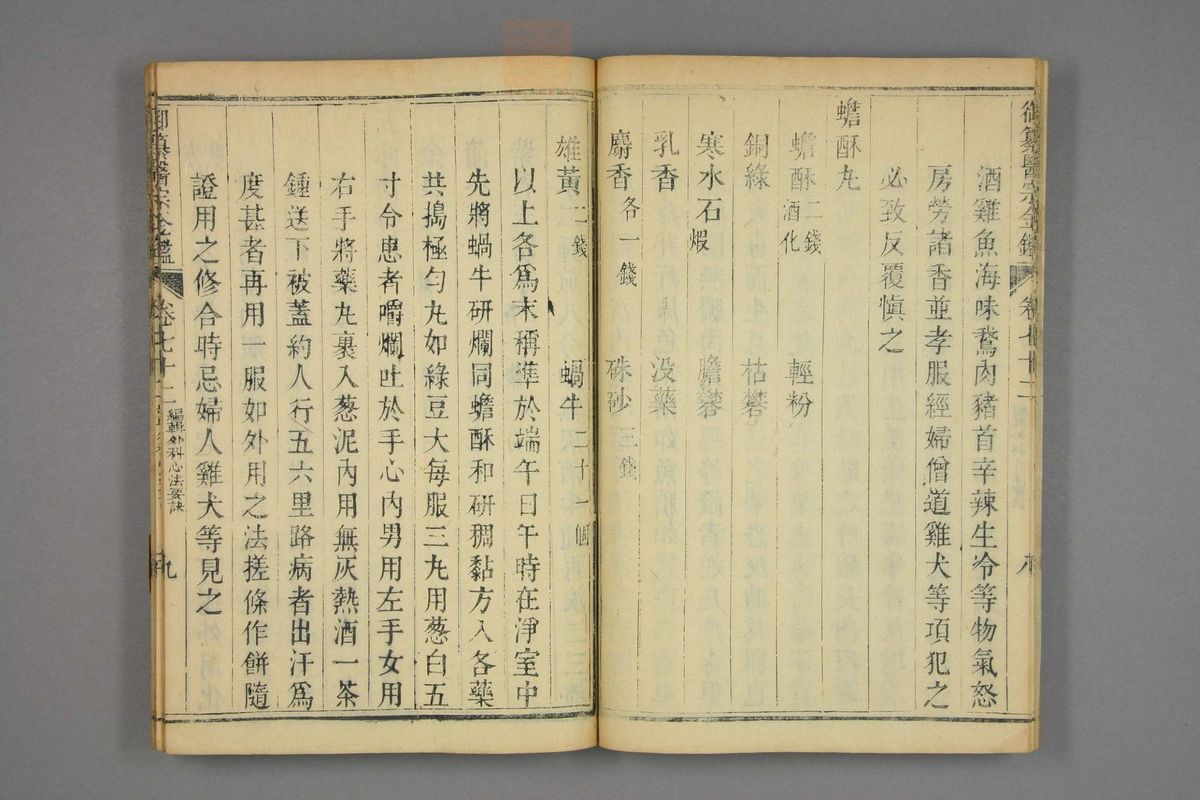 御纂醫宗金鑑 卷七十二 八
酒雞魚海味鵞肉豬首辛辣生冷等物氣怒
房勞諸香並孝服經婦僧道雞犬等項犯之
必致反覆愼之
蟾酥丸
蟾酥二錢酒化 輕粉
銅綠 枯礬
寒水石煆 膽礬
乳香 没藥
麝香各一錢 硃砂三錢
雄黃二錢 蝸牛二十一個
以上各爲末稱準於端午日午時在淨室中
先將蝸牛研爛同蟾酥和研稠黏方入各藥
共搗極匀丸如綠豆大每服三丸用葱白五
寸令患者嚼爛吐於手心內男用左手女用
右手將藥丸裹入葱泥內用無灰熱酒一茶
鍾送下被蓋約人行五六里路病者出汗爲
度甚者再用一服如外用之法搓條作餅隨
證用之修合時忌婦人雞犬等見之
御纂醫宗金鑑 卷七十二 編輯外科心法要訣 九